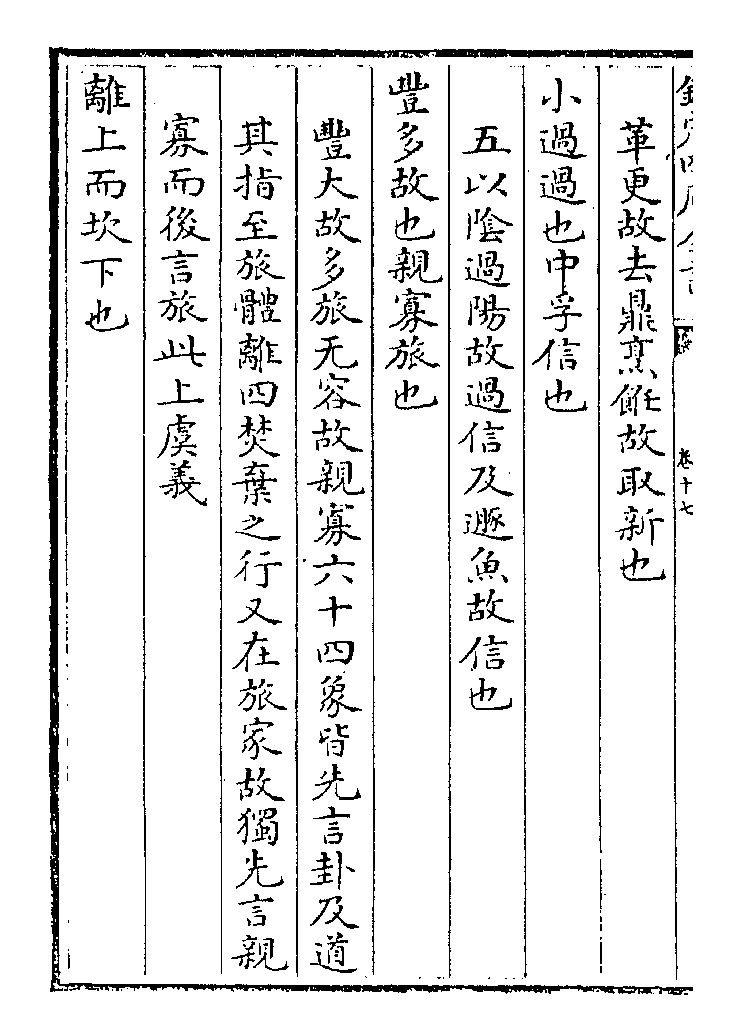 革更故去鼎烹飪故取新也
小過過也中孚信也
五以陰過陽故過信及遯魚故信也
豐多故也親寡旅也
豐大故多旅无容故親寡六十四象皆先言卦及道
其指至旅體離四焚棄之行又在旅家故獨先言親
寡而後言旅此上虞義
離上而坎下也
卷十七